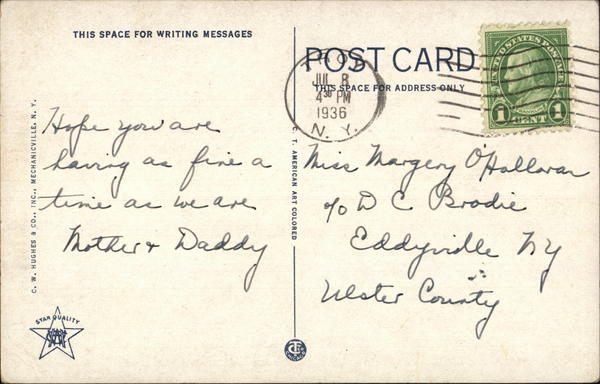 THIS SPACE FOR WRITING MESSAGES
POST CARD
THIS SPACE FOR ADDRESS ONLY
JUL 8
4 30 PM
1936
N. Y.
UNITED STATES POSTAGE
1 CENT 1
Hope you are
having as fine a
time as we are
Mother & Daddy
Miss Margery O'Halloran
c/o D C Brodie
Eddyville NY
Ulster County
C. W. HUGHES & CO., INC., MECHANICVILLE, N. Y.
C. T. AMERICAN ART COLORED
STAR QUALITY